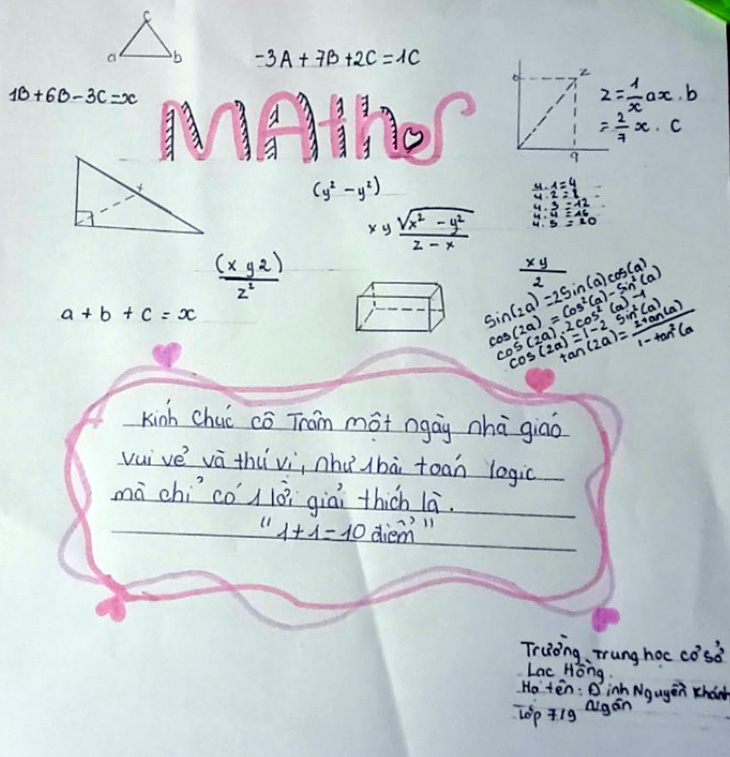 c
a b
-3A + 7B + 2C = 1C
1B + 6B - 3C = x
MAths
z
b
a
z = 1/x ax . b
= 2/7 x . c
(y² - y²)
xy √(x² - y²) / z - x
4 . 1 = 4
4 . 2 = 8
4 . 3 = 12
4 . 4 = 16
4 . 5 = 20
(x y 2) / z²
xy / 2
a + b + c = x
Sin(2a) = 2Sin(a)cos(a)
cos(2a) = cos²(a) - sin²(a)
cos(2a) = 2cos²(a) - 1
cos(2a) = 1 - 2 sin²(a)
tan(2a) = 2tan(a) / 1 - tan²(a
Kính chúc cô Trâm một ngày nhà giáo
vui vẻ và thú vị, như 1 bài toán logic
mà chỉ có 1 lời giải thích là.
"1+1=10 điểm"
Trường Trung học cơ sở
Lạc Hồng
Họ tên: Đinh Nguyễn Khánh
Ngân
Lớp 7/9